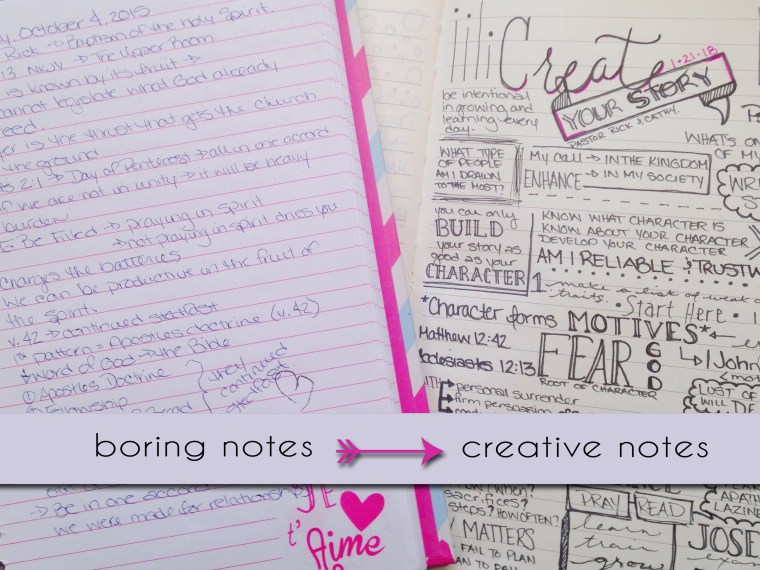 y, October 4, 2015
Rick -> Baptism of the Holy Spirit.
13 NKJV -> The Upper Room
is known by its fruit ->
cannot legislate what God already
eed.
er is the thrust that gets the church
the ground
2:1 -> Day of Pentecost -> all in one accord
if we are not in unity -> it will be heavy
burden
To Be Filled -> praying in Spirit
-> not praying in spirit dries you
Charges the batteries
We can be productive in the fruit of
the Spirit.
v.42 -> continued steadfast
1st pattern = Apostles doctrine (v.42)
*Word of God -> the Bible
① Apostles Doctrine
② Fellowship
Bread
they
continued
steadfast
-> Be in one accord
we were made for relationship
JE
t'
Aime
Create
1·21·18
YOUR STORY
PASTOR RICK & CATHY.
be intentional
in growing and
learning every
day.
WHAT TYPE
OF PEOPLE
AM I DRAWN
TO THE MOST?
My call -> IN THE KINGDOM
ENHANCE -> IN MY SOCIETY
WHAT'S ON
OF MY
WRI
S
you can only
BUILD
your story as
good as your
CHARACTER
KNOW WHAT CHARACTER IS
KNOW ABOUT YOUR CHARACTER
DEVELOP YOUR CHARACTER
AM I RELIABLE & TRUSTW
1. make a list of weak
traits. • Start Here •
*Character forms MOTIVES*
Matthew 12:42
Ecclesiastes 12:13
FEAR GOD
ROOT OF CHARACTER
1 John
LOST OF
WILL DE
personal surrender
firm persuasion of
boring notes
creative notes
when?
sacrifices?
steps? HOW OFTEN?
MATTERS
FAIL TO PLAN
AN TO FAIL
PRAY
READ
learn
train
grow
APATH
LAZINE
JOSE
exam